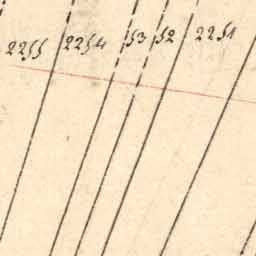 2255 2254 53 52 2251